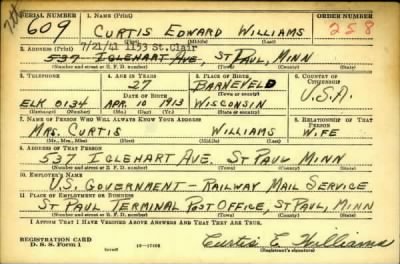 SERIAL NUMBER 1. NAME (Print) ORDER NUMBER
609 CURTIS EDWARD WILLIAMS 258
(First) (Middle) (Last)
2. ADDRESS (Print) 7/21/41 1153 St. Clair
537 IGLEHART AVE, ST PAUL, MINN
(Number and street or R. F. D. number) (Town) (County) (State)
3. TELEPHONE 4. AGE IN YEARS 5. PLACE OF BIRTH 6. COUNTRY OF CITIZENSHIP
27 BARNEVELD
DATE OF BIRTH (Town or county)
ELK 0134 APR. 10 1913 WISCONSIN U.S.A.
(Mo.) (Day) (Yr.) (State or country)
7. NAME OF PERSON WHO WILL ALWAYS KNOW YOUR ADDRESS 8. RELATIONSHIP OF THAT PERSON
MRS. CURTIS WILLIAMS WIFE
(Mr., Mrs., Miss) (First) (Middle) (Last)
9. ADDRESS OF THAT PERSON
537 IGLEHART AVE. ST PAUL MINN
(Number and street or R. F. D. number) (Town) (County) (State)
10. EMPLOYER'S NAME
U.S. GOVERNMENT – RAILWAY MAIL SERVICE
11. PLACE OF EMPLOYMENT OR BUSINESS
ST PAUL TERMINAL POST OFFICE, ST PAUL, MINN
(Number and street or R. F. D. number) (Town) (County) (State)
I AFFIRM THAT I HAVE VERIFIED ABOVE ANSWERS AND THAT THEY ARE TRUE.
REGISTRATION CARD
D. S. S. Form 1 Curtis E. Williams
(Registrant's signature)